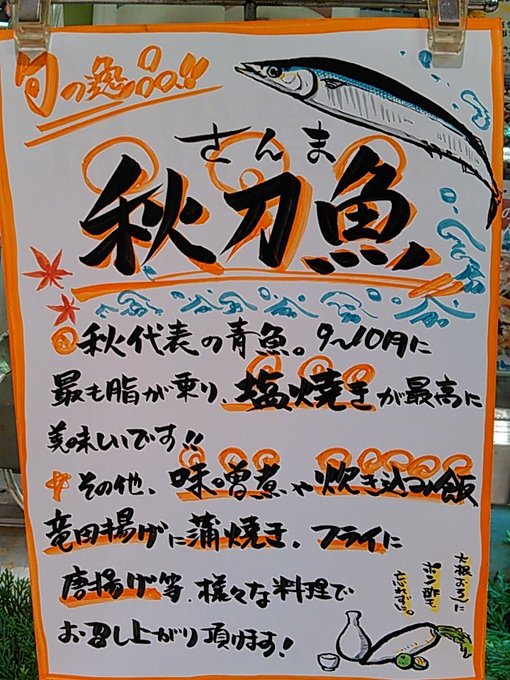 旬の逸品!!
さんま
秋刀魚
秋代表の青魚。9~10月に
最も脂が乗り、塩焼きが最高に
美味しいです!!
その他、味噌煮や炊き込み飯
竜田揚げに蒲焼き、フライに
唐揚げ等、様々な料理で
お召し上がり頂けます!
大根おろしに
ポン酢も
忘れずに。